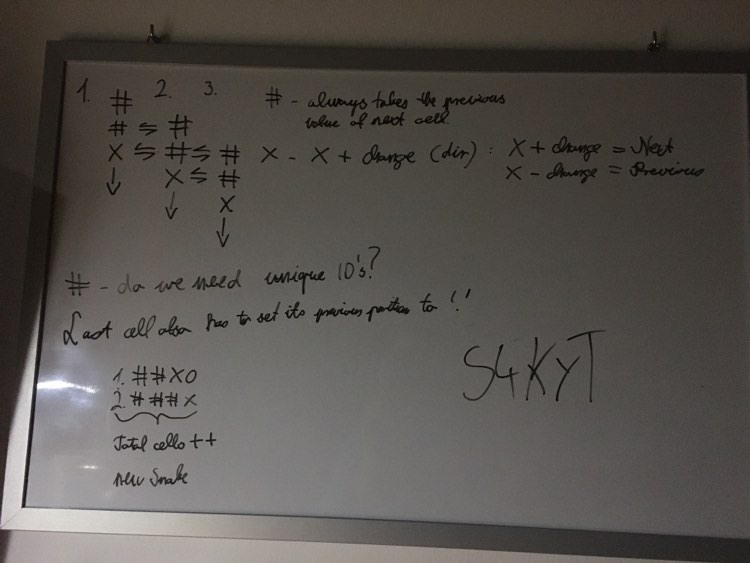 1. 2. 3.
#
# ⇆ #
X ⇆ # ⇆ #
↓ X ⇆ #
↓ X
↓
# - always takes the previous
value of next cell.
X - X + change (dir) : X + change = Next
X - change = Previous
# - do we need unique ID's?
Last cell also has to set its previous position to ' '
1. # # X O
2. # # # X
Total cells ++
new Snake
S4KyT